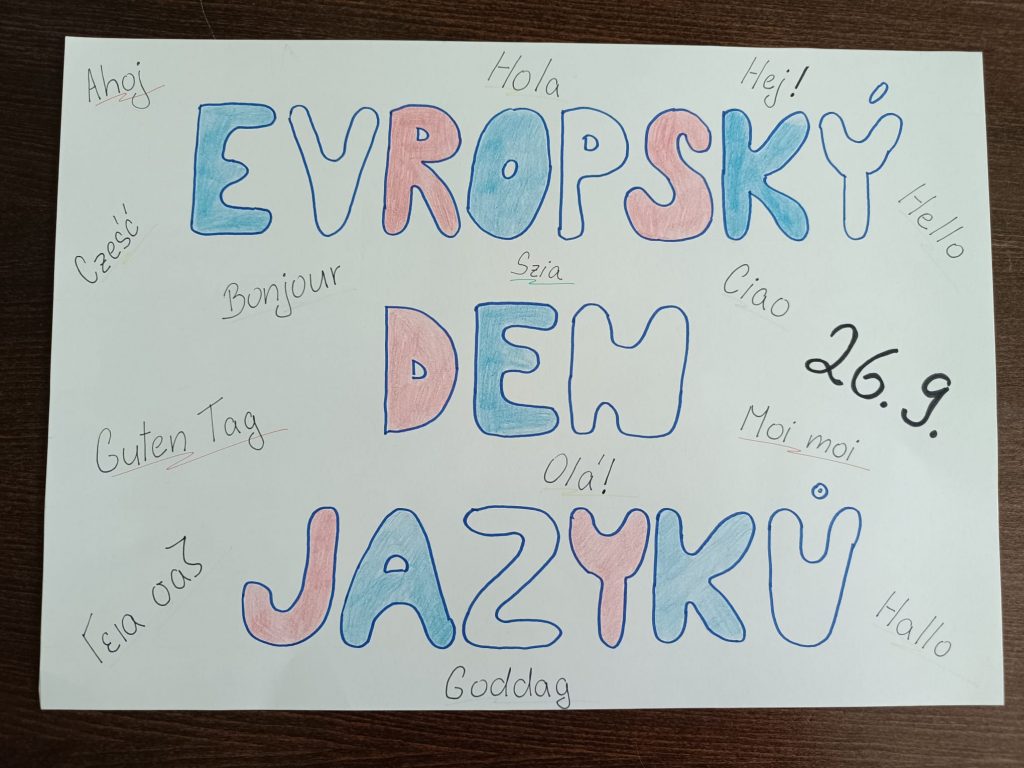 Ahoj
Hola
Hej!
EVROPSKÝ
Hello
Cześć
Bonjour
Szia
Ciao
DEN
26.9.
Guten Tag
Moi moi
Olá!
JAZYKŮ
Γεια σας
Hallo
Goddag